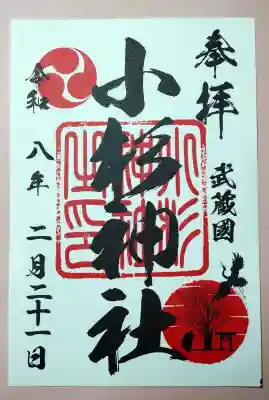 奉拝
武蔵國
小杉神社
令和
八年 二月二十一日